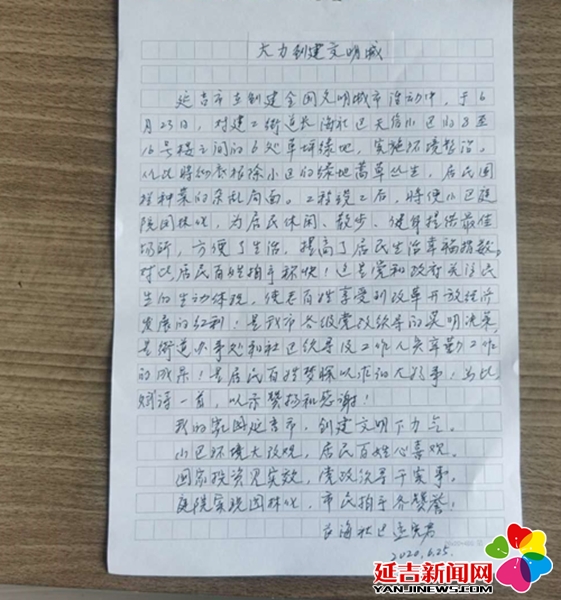 大力创建文明城
延吉市在创建全国文明城市活动中，于6
月23日，对建工街道长海社区天信小区的8至
16号楼之间的6处草坪绿地，实施环境整治。
从此将彻底根除小区的绿地蒿草丛生，居民围
栏种菜的杂乱局面。工程竣工后，将使小区庭
院园林化，为居民休闲、散步、健身提供最佳
场所，方便了生活，提高了居民生活幸福指数。
对此居民百姓拍手称快！这是党和政府关注民
生的生动体现，使老百姓享受到改革开放经济
发展的红利！是我市各级党政领导的英明决策，
是街道办事处和社区领导及工作人员辛勤工作
的成果！是居民百姓梦寐以求的大好事！为此
赋诗一首，以示赞扬和感谢！
我的家园延吉市，创建文明下力气。
小区环境大改观，居民百姓心喜欢。
国家投资见实效，党政领导干实事。
庭院实现园林化，市民拍手齐赞誉。
长海社区
2020.6.25.
延吉新闻网
YANJI NEWS.COM